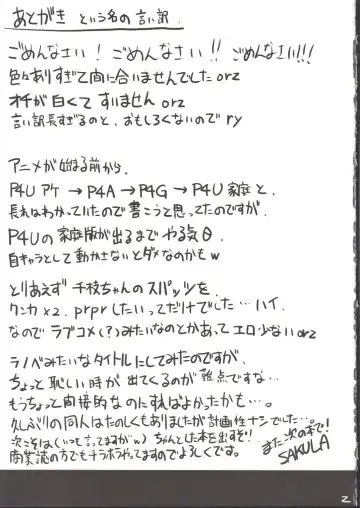 あとがき という名の言い訳.
ごめんなさい! ごめんなさい!! ごめんなさい!!!
色々ありすぎて間に合いませんでした orz
オチが白くて すいません orz
言い訳長すぎるのと、おもしろくないので ry
アニメが始まる前から、
P4U アケ → P4A → P4G → P4U 家庭 と、
長れはわかっていたので書こうと思ってたのですが、
P4Uの家庭版が出るまで やる気θ.
自キャラとして動かさないとダメなのかもw
とりあえず 千枝ちゃんのスパッツを、
クンカ×2、prprしたいってだけでした… ハイ、
なので ラブコメ(?)みたいなのとかあって エロ少ない orz
ラノベみたいなタイトルにしてみたのですが、
ちょっと恥しい時が 出てくるのが難点ですな…
もうちょっと間接的なのにすればよかったかも…。
久しぶりの同人はたのしくもありましたが計画性ナシでした…。
次こそは(いつも言ってますがw)ちゃんとした本を出すぞ!
商業誌の方でもチラホラやってますのでよろしくです。
また次の本で!
SAKULA
2